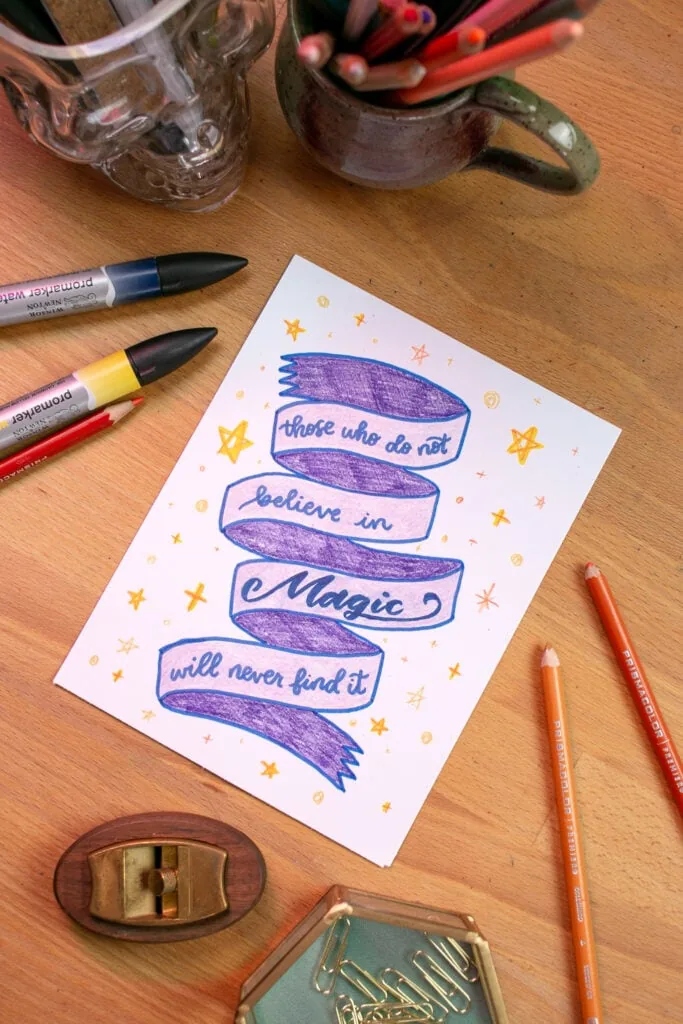 those who do not
believe in
Magic
will never find it
promarker wate
WINSOR
NEWTON
promarker
WINSOR
NEWTON
PRISMACOLOR PREMIER
PRISMACOLOR PREMIER